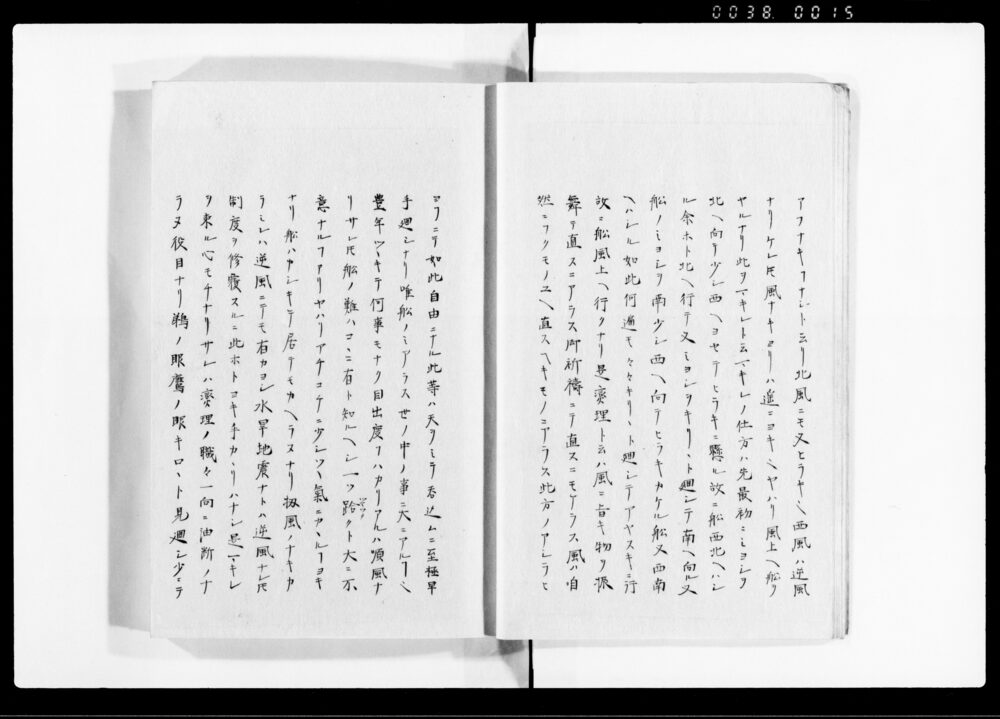 0038 0015
アフナキフナシト云リ北風ニモ又ヒラヤミ西風ハ逆風
ナリケレ𪜈風ナキヨリハ遙ニヨキミヤハリ風上ヘ船ヲ
ヤルナリ此ヲマキレト云マキレノ仕方ハ先最初ニミヨシヲ
北ヘ向テ少シ西ヘヨセテヒラキニ懸ル故ニ船西北ヘハシ
ル余ホト北ヘ行テ又ミヨシヲキリヽト廻シテ南ヘ向ル又
船ノミヨシヲ南少シ西ヘ向テヒラキカケル船又西南
ヘハシル如此何遍モ々々キリヽト廻シテアヤスキニ行
故ニ船風上ヘ行クナリ是濱理ト云ハ風ニ旨キ物ヲ振
舞ヲ直スニアラス所祈禱ニテ直スニモアラス風ハ自
然ニフクモノユヘ直スヘキモノニアラス此方ノアシラヒ
ヨフニテ如此自由ニナル此等ハ天ヲミテ呑込ムニ至極早
手廻シナリ唯船ノミアラス世ノ中ノ事ニ大ニアルフミ
豊年ツヽキテ何事モナク目出度フハカリアルハ順風ナ
リサレ𪜈船ノ難ハコヽニ有ト知ルヘシ一ツ跲クト大ニ不
意ナルフアリヤハリアチコチニ少シツヽ氣ニカヽルフヨキ
ナリ船ハカシキテ居テモカヘラヌナリ扨風ノナキカ
ラミレハ逆風ニテモ有カヨシ水旱地震ナトハ逆風ナレ𪜈
制度ヲ修覆スルニ此ホトヨキ手カヽリハナシ是マキレ
ヲ乗ル心モチナリサレハ濱理ノ職々一向ニ油断ノナ
ラヌ役目ナリ鵜ノ眼鷹ノ眼キロヽト見廻シ少ニテ